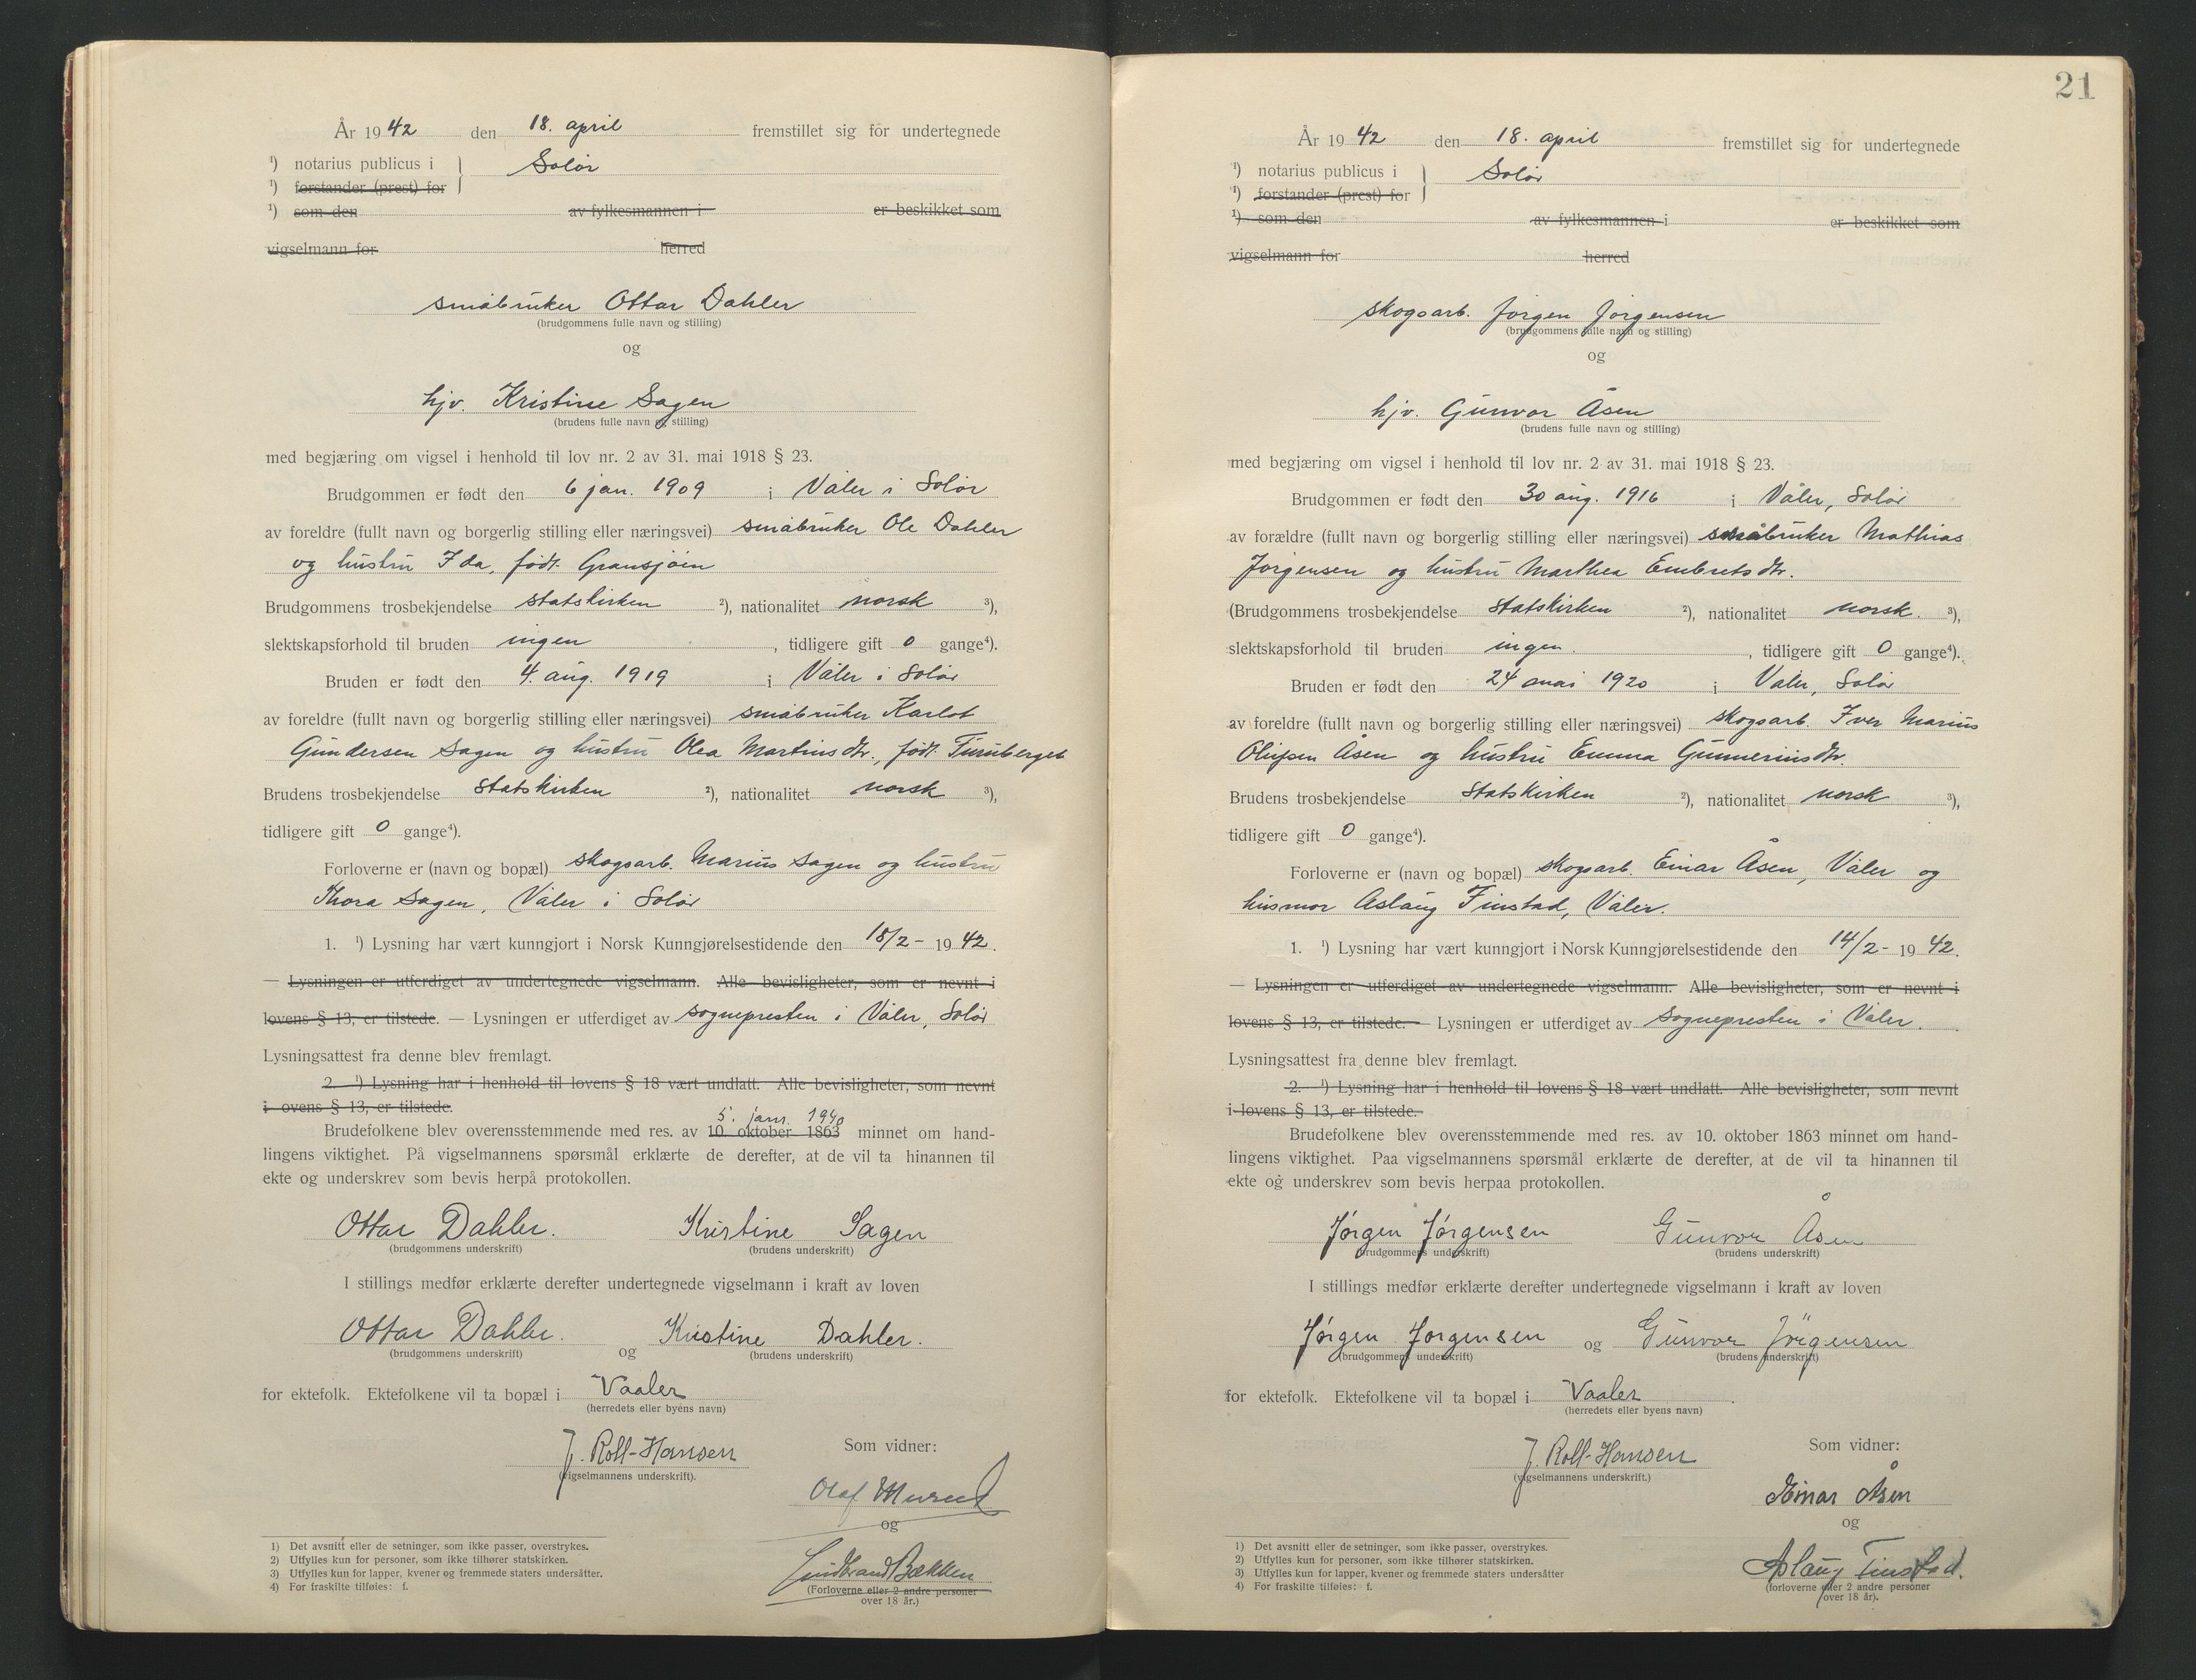 År 1942 den 18. april fremstillet sig for undertegnede
¹) notarius publicus i } Solør
¹) forstander (prest) for
¹) som den av fylkesmannen i er beskikket som
vigselmann for herred
småbruker Ottar Dahler
(brudgommens fulle navn og stilling)
og
hjv. Kristine Sagen
(brudens fulle navn og stilling)
med begjæring om vigsel i henhold til lov nr. 2 av 31. mai 1918 § 23.
Brudgommen er født den 6 jan. 1909 i Våler i Solør
av foreldre (fullt navn og borgerlig stilling eller næringsvei) småbruker Ole Dahler
og hustru Ida, født Gransjøen
Brudgommens trosbekjendelse statskirken ²), nationalitet norsk ³),
slektskapsforhold til bruden ingen , tidligere gift 0 gange⁴).
Bruden er født den 4. aug. 1919 i Våler i Solør
av foreldre (fullt navn og borgerlig stilling eller næringsvei) småbruker Karlot
Gundersen Sagen og hustru Olea Martinsdtr., født Turuberget
Brudens trosbekjendelse statskirken ²), nationalitet norsk ³),
tidligere gift 0 gange⁴).
Forloverne er (navn og bopæl) skogsarb. Marius Sagen og hustru
Thora Sagen, Våler i Solør
1. ¹) Lysning har vært kunngjort i Norsk Kunngjørelsestidende den 18/2 - 1942.
— Lysningen er utferdiget av undertegnede vigselmann. Alle bevisligheter, som er nevnt i
lovens § 13, er tilstede. — Lysningen er utferdiget av sognepresten i Våler, Solør
Lysningsattest fra denne blev fremlagt.
2. ¹) Lysning har i henhold til lovens § 18 vært undlatt. Alle bevisligheter, som nevnt
i ovens § 13, er tilstede.
5. jan. 1940
Brudefolkene blev overensstemmende med res. av 10. oktober 1863 minnet om hand-
lingens viktighet. På vigselmannens spørsmål erklærte de derefter, at de vil ta hinannen til
ekte og underskrev som bevis herpå protokollen.
Ottar Dahler. Kristine Sagen
(brudgommens underskrift) (brudens underskrift)
I stillings medfør erklærte derefter undertegnede vigselmann i kraft av loven
Ottar Dahler. og Kristine Dahler.
(brudgommens underskrift) (brudens underskrift)
for ektefolk. Ektefolkene vil ta bopæl i Vaaler
(herredets eller byens navn)
J. Roll-Hansen
(vigselmannens underskrift).
Som vidner:
Olaf
og
Bækken
(Forloverne eller 2 andre personer
over 18 år.)
1) Det avsnitt eller de setninger, som ikke passer, overstrykes.
2) Utfylles kun for personer, som ikke tilhører statskirken.
3) Utfylles kun for lapper, kvener og fremmede staters undersåtter.
4) For fraskilte tilføies: f.
21
År 1942 den 18. april fremstillet sig for undertegnede
¹) notarius publicus i } Solør
¹) forstander (prest) for
¹) som den av fylkesmannen i er beskikket som
vigselmann for herred
skogsarb. Jørgen Jørgensen
(brudgommens fulle navn og stilling)
og
hjv. Gunvor Åsen
(brudens fulle navn og stilling)
med begjæring om vigsel i henhold til lov nr. 2 av 31. mai 1918 § 23.
Brudgommen er født den 30 aug. 1916 i Våler, Solør
av forældre (fullt navn og borgerlig stilling eller næringsvei) småbruker Mathias
Jørgensen og hustru Marthea Embretsdtr.
(Brudgommens trosbekjendelse statskirken ²), nationalitet norsk. ³),
slektskapsforhold til bruden ingen. , tidligere gift 0 gange⁴).
Bruden er født den 24 mai 1920 i Våler, Solør
av foreldre (fullt navn og borgerlig stilling eller næringsvei) skogsarb. Iver Marius
Olufsen Åsen og hustru Emma Gunneriusdtr.
Brudens trosbekjendelse Statskirken ²), nationalitet norsk ³),
tidligere gift 0 gange⁴).
Forloverne er (navn og bopæl) skogsarb. Einar Åsen, Våler og
husmor Aslaug Finstad, Våler.
1. ¹) Lysning har vært kunngjort i Norsk Kunngjørelsestidende den 14/2 - 1942.
— Lysningen er utferdiget av undertegnede vigselmann. Alle bevisligheter, som er nevnt i
lovens § 13, er tilstede. — Lysningen er utferdiget av sognepresten i Våler.
Lysningsattest fra denne blev fremlagt.
2. ¹) Lysning har i henhold til lovens § 18 vært undlatt. Alle bevisligheter, som nevnt
i lovens § 13, er tilstede.
Brudefolkene blev overensstemmende med res. av 10. oktober 1863 minnet om hand-
lingens viktighet. Paa vigselmannens spørsmål erklærte de derefter, at de vil ta hinannen til
ekte og underskrev som bevis herpaa protokollen.
Jørgen Jørgensen Gunvor Åsen
(brudgommens underskrift) (brudens underskrift)
I stillings medfør erklærte derefter undertegnede vigselmann i kraft av loven
Jørgen Jørgensen og Gunvor Jørgensen
(brudgommens underskrift) (brudens underskrift)
for ektefolk. Ektefolkene vil ta bopæl i Vaaler.
(herredets eller byens navn)
J. Roll-Hansen
(vigselmannens underskrift.)
Som vidner:
Einar Åsen
og
Aslaug Finstad.
(forloverne eller 2 andre personer
over 18 år).
1) Det avsnitt eller de setninger, som ikke passer, overstrykes.
2) Utfylles kun for personer, som ikke tilhører statskirken.
3) Utfylles kun for lapper, kvener og fremmede staters undersåtter
4) For fraskilte tilføies: f.